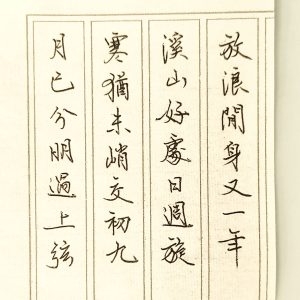 放浪閒身又一年
溪山好處日週旋
寒猶未峭交初九
月已分明過上弦